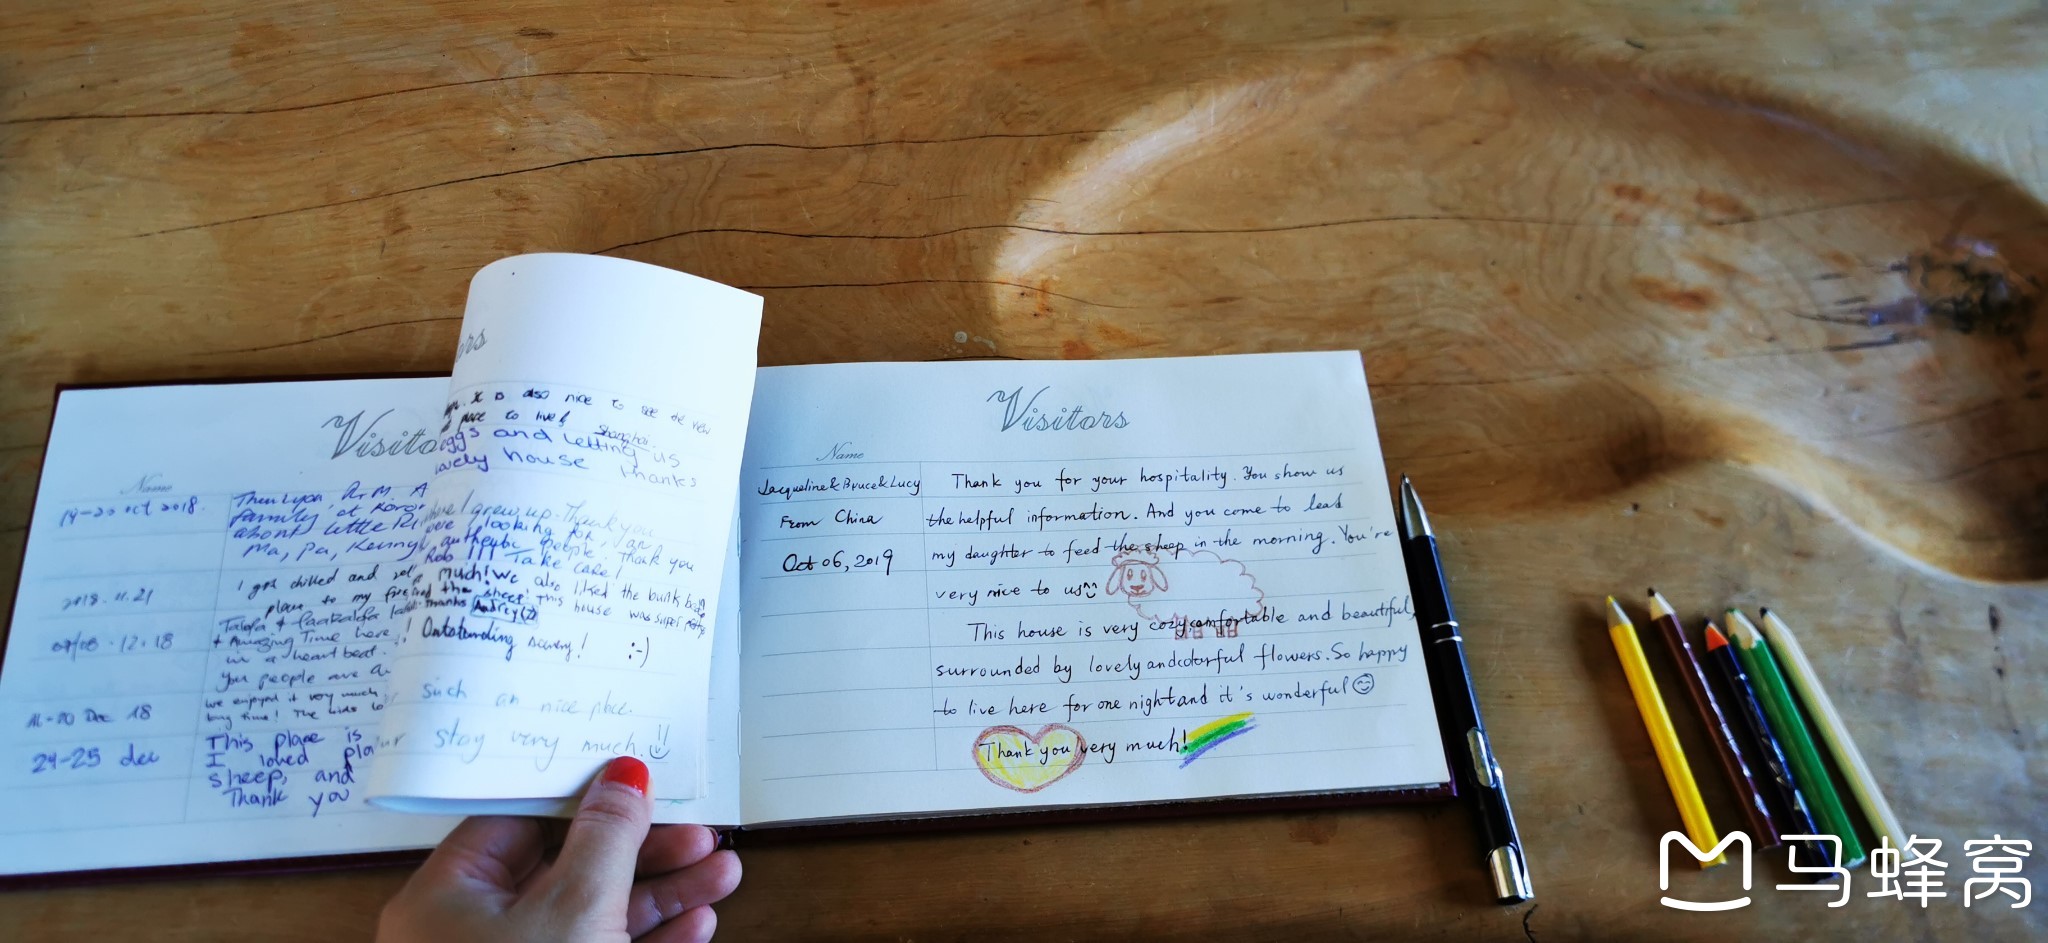 Visito
Name
19-20 oct 2018.
family, at
about little
Ma, Pa, Kenny,
2018.11.21
I got chilled and
place to my
07/08-12.18
+ Amazing Time here,
in a heart beat.
you people are
we enjoyed it very much
bug time! The kids
24-25 dec
This place is
I loved
sheep, and
Thank you
ors
is also nice to see the new
place to live!
Shanghai.
eggs and letting us
lovely house thanks
I grew up. Thank you
looking for,
authentic people. Thank you
Rob!!! Take care!
much! We also liked the bunk
the sheep! This house was super
thanks Audrey(7)
Outstanding scenery! :-)
such an nice place.
stay very much.
Visitors
Name
Jacqueline&Bruce&Lucy
From China
Oct 06, 2019
Thank you for your hospitality. You show us
the helpful information. And you come to lead
my daughter to feed the sheep in the morning. You're
very nice to us
This house is very cozy, comfortable and beautiful,
surrounded by lovely and colorful flowers. So happy
to live here for one night and it's wonderful
Thank you very much!
马蜂窝